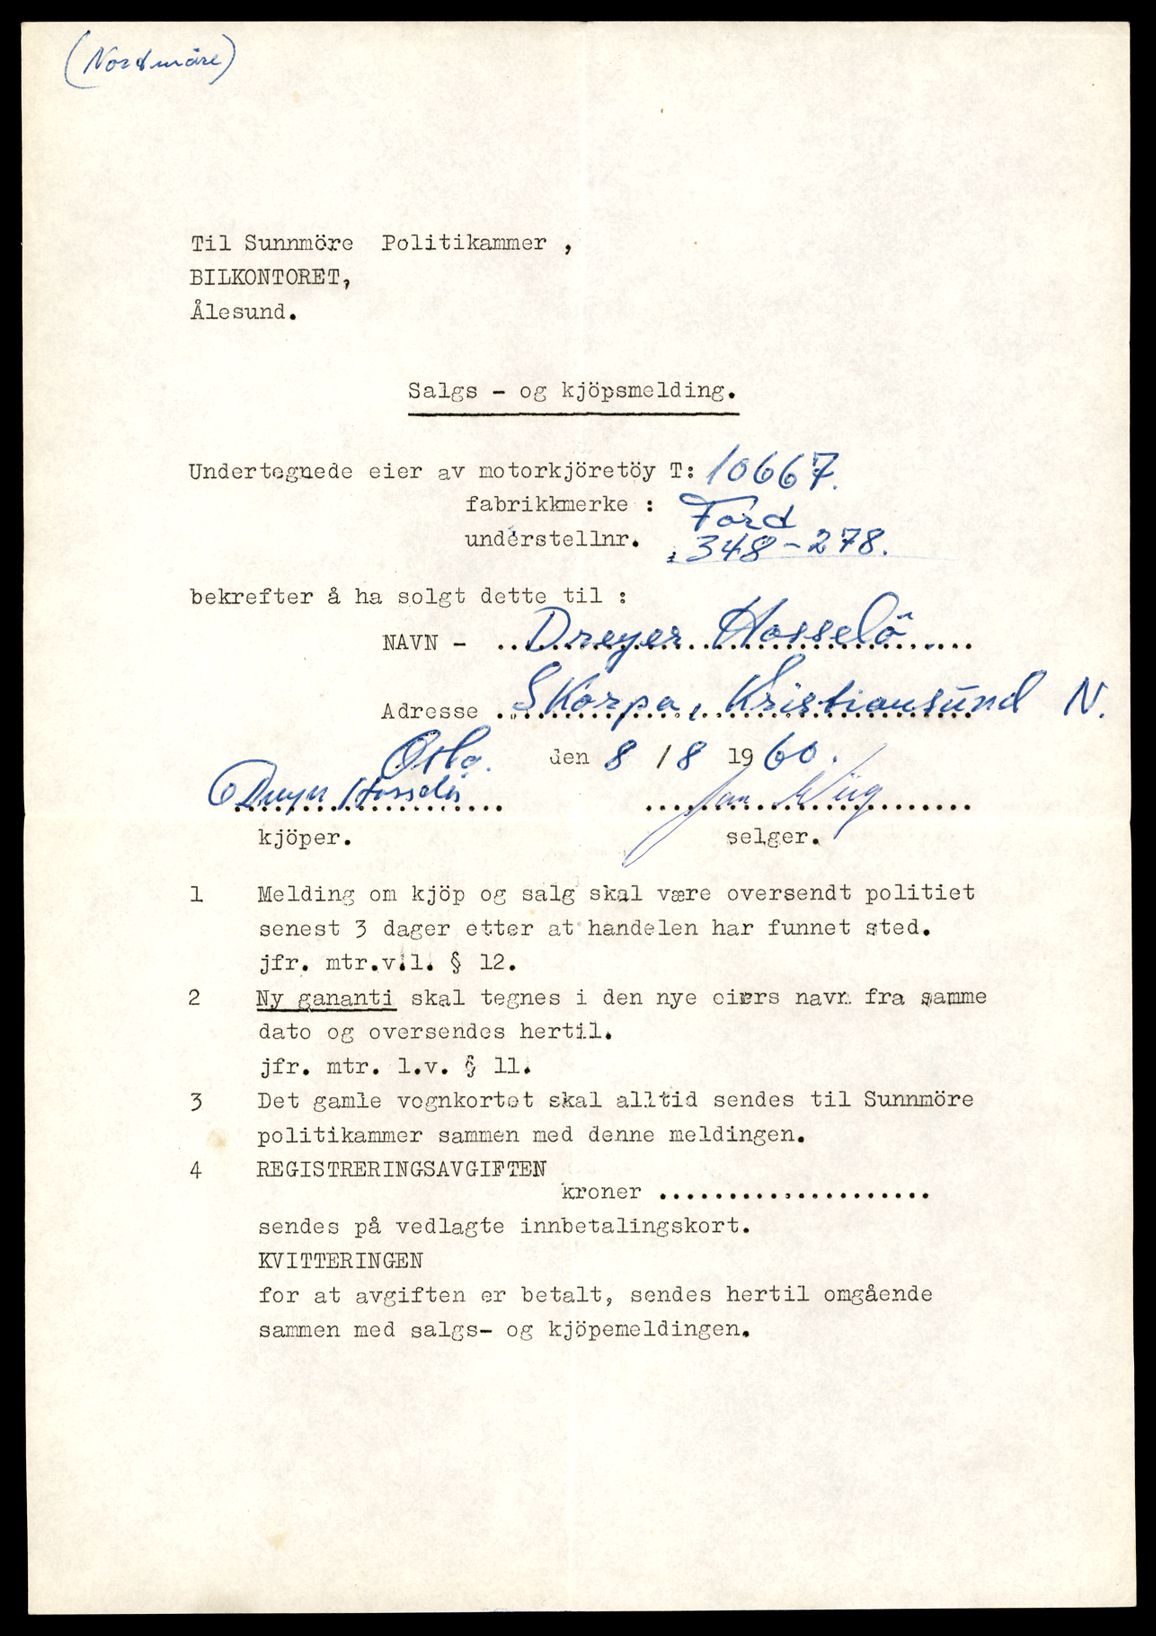 (Nordmöre)
Til Sunnmöre Politikammer ,
BILKONTORET,
Ålesund.
Salgs - og kjöpsmelding.
Undertegnede eier av motorkjöretöy T: 10667.
fabrikkmerke : Ford
understellnr. : 348-278.
bekrefter å ha solgt dette til :
NAVN - Dreyer Hosselö
Adresse Skorpa, Kristiansund N.
Oslo. den 8 / 8 1960.
Dreyer Hosselö Jan Wiig
kjöper. selger.
1 Melding om kjöp og salg skal være oversendt politiet
senest 3 dager etter at handelen har funnet sted.
jfr. mtr.v.l. § 12.
2 Ny gananti skal tegnes i den nye eiers navn fra samme
dato og oversendes hertil.
jfr. mtr. l.v. § 11.
3 Det gamle vognkortet skal alltid sendes til Sunnmöre
politikammer sammen med denne meldingen.
4 REGISTRERINGSAVGIFTEN
kroner ....................
sendes på vedlagte innbetalingskort.
KVITTERINGEN
for at avgiften er betalt, sendes hertil omgående
sammen med salgs- og kjöpemeldingen.